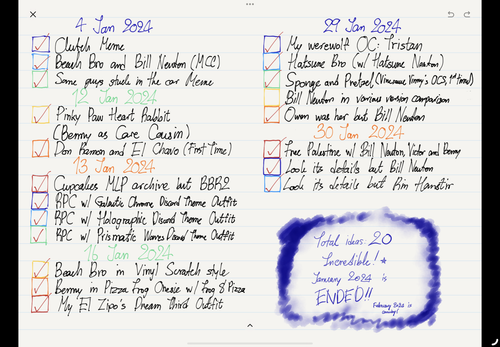 4 Jan 2024
Clutch Meme
Beach Bro and Bill Newton (MCC)
Some guys stuck in the car Meme
12 Jan 2024
Pinky Paw Heart Rabbit
(Benny as Care Cousin)
Don Ramon and El Chavo (First Time)
13 Jan 2024
Cupcakes MLP archive but BBR2
RPC w/ Galactic Chrome Discord Theme Outfit
RPC w/ Holographic Discord Theme Outfit
RPC w/ Prismatic Waves Discord Theme Outfit
16 Jan 2024
Beach Bro in Vinyl Scratch style
Benny in Pizza Frog Onesie w/ Frog & Pizza
My El Zipo's Dream Third Outfit
29 Jan 2024
My werewolf OC: Tristan
Hatsune Bro (w/ Hatsune Newton)
Sponge and Pretzel (Vimy's OCS, 1st time)
Bill Newton in various version comparison
Owen was her but Bill Newton
30 Jan 2024
Free Palestine w/ Bill Newton, Victor and Benny
Look its details but Bill Newton
Look its details but Rim
Total ideas 20
Incredible!
January 2024 is
ENDED!!
February 2024 is
coming!